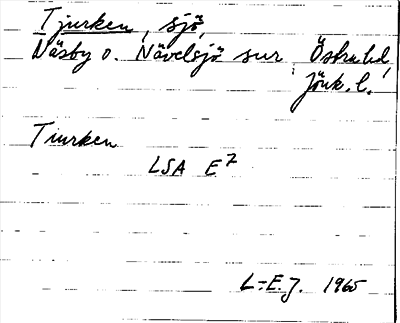 Tjurken, sjö,
Näsby o. Nävelsjö snr, Östra hd,
Jönk. l.
Tiurken
LSA E7
L-E. J. 1965